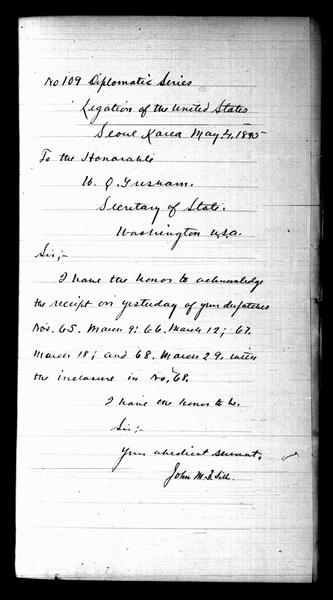 No 109 Diplomatic Series
Legation of the United States
Seoul Korea May 4, 1895
To the Honorable
W. Q. Gresham.
Secretary of State.
Washington U.S.A.
Sir;-
I have the honor to acknowledge
the receipt on yesterday of your dispatches
Nos. 65. March 9; 66. March 12; 67.
March 18; and 68. March 29. with
the inclosure in No. 68.
I have the honor to be.
Sir;-
Your obedient servant.
John M. B. Sill.